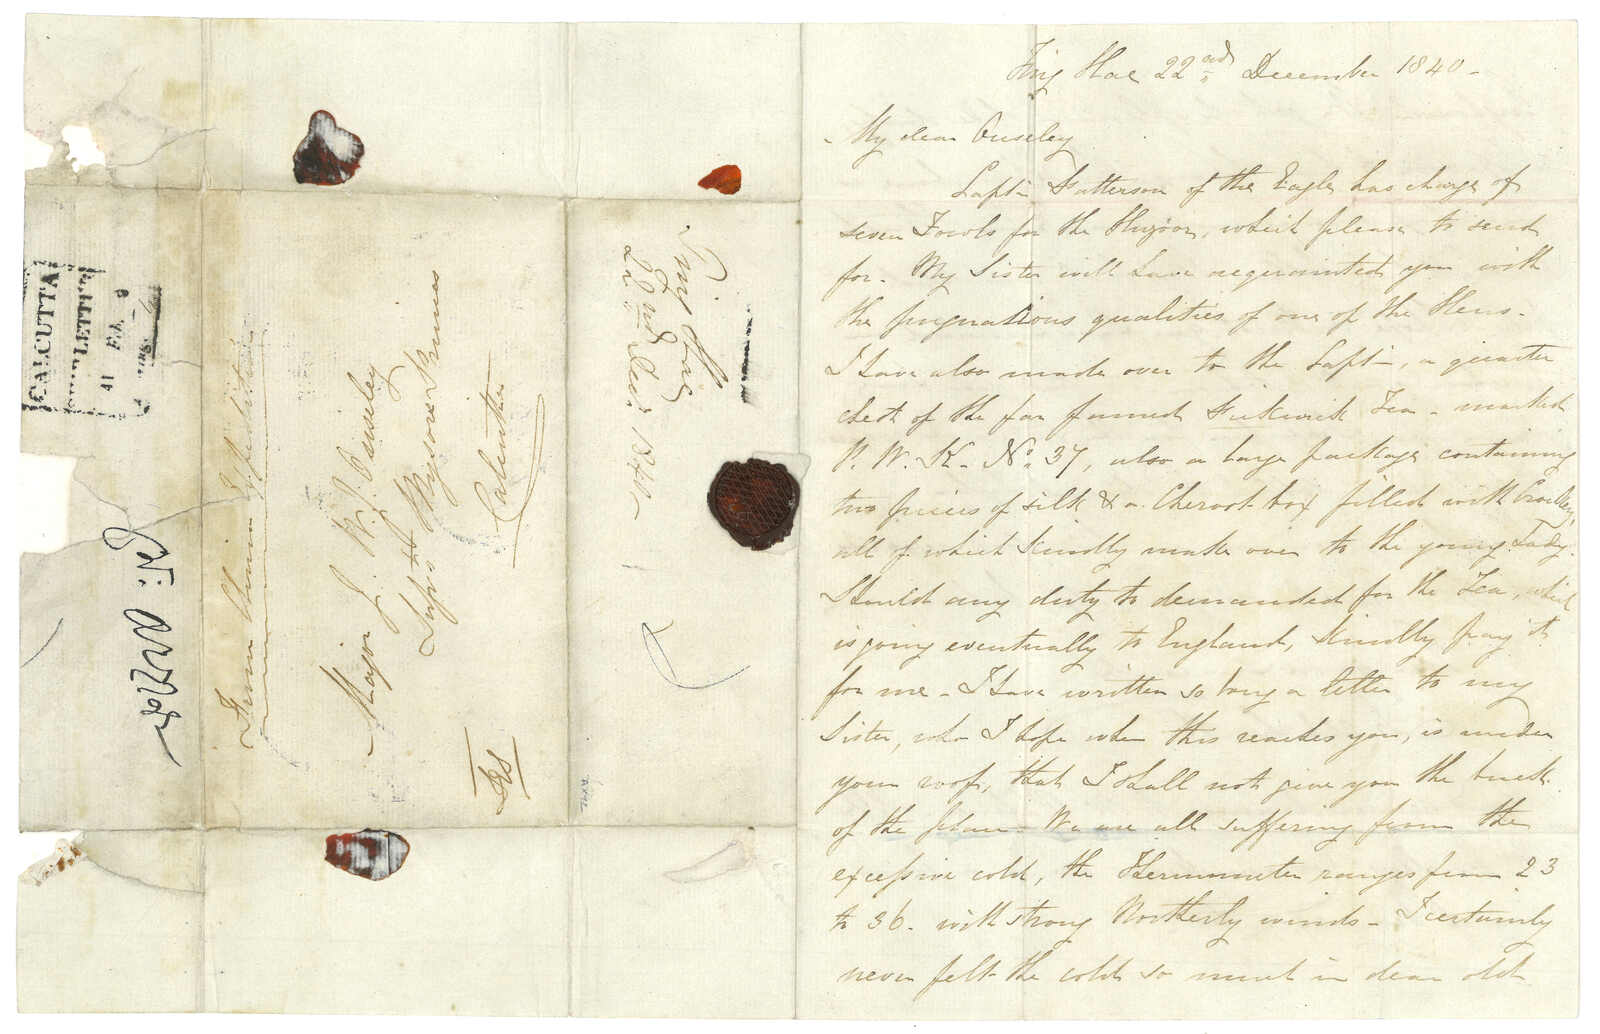 Ting Hae 22nd December 1840 -
My dear Ouseley
Captn Patterson of the Eagle has charge of
seven Fowls for the Huzoor, which please to send
for - My Sister will have acquainted you with
the pugnacious qualities of one of the Hens -
I have also made over to the Captn, a quarter
chest of the far famed Pickwick Tea - marked
P. W. K - No. 37, also a large package containing
two pieces of silk & a Cheroot box filled with
all of which kindly make over to the young Lady.
Should any duty be demanded for the Tea, which
is going eventually to England, kindly pay it
for me - I have written so long a letter to my
Sister, who I hope when this reaches you, is under
your roof, that I shall not give you the
of the place - We are all suffering from the
excessive cold, the Thermometer ranges from 23
to 36 - with strong Northerly winds - I certainly
never felt the cold so much in dear old
Ting Hai
22nd Decr 1840
From China Expedition
Major J. W. J. Ouseley
Supdt Mysore Princes
Calcutta
CALCUTTA
SHIP LETTER
41